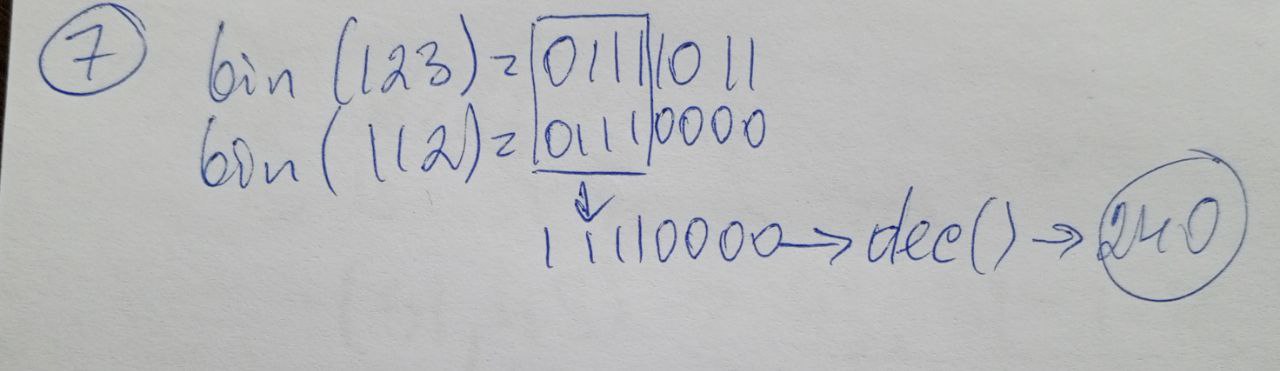 7 bin (123) = 01111011
bin (112) = 01110000
↓
11110000 → dec() → 240